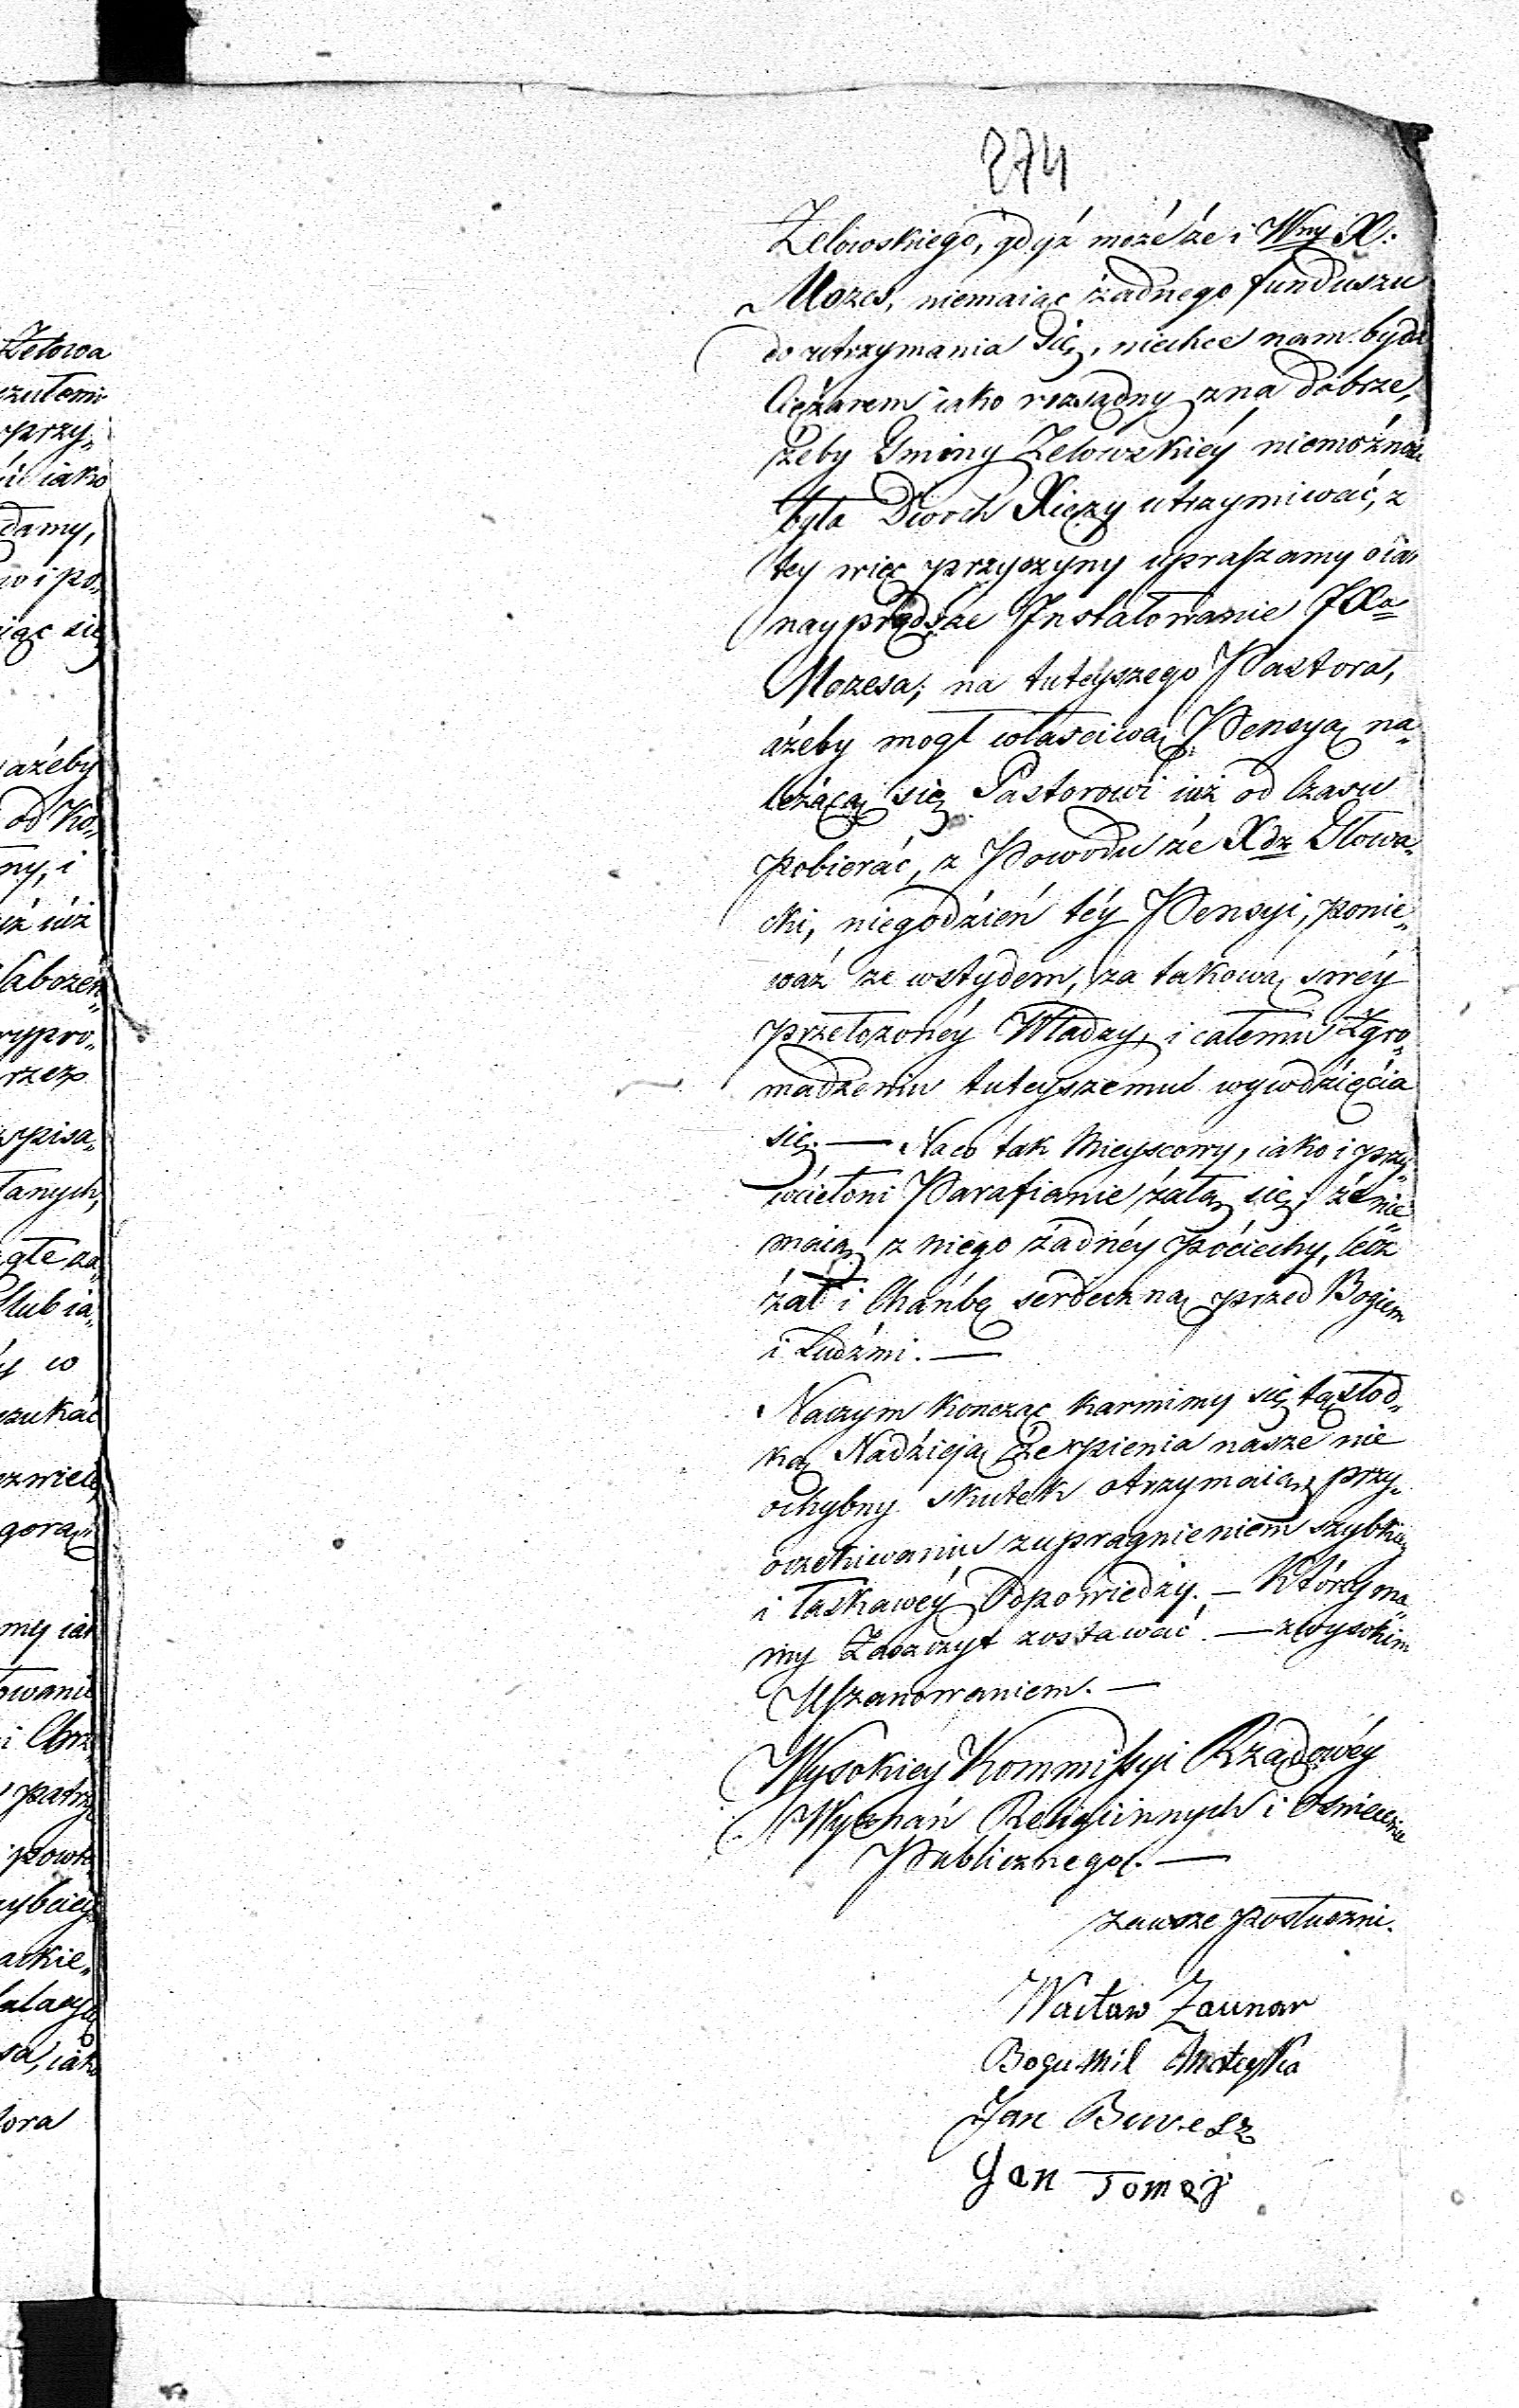 274
Zelowskiego, gdyż może że i Wny X.
Mozes, niemaiąc żadnego funduszu
do utrzymania się, niechce nam bydź
Ciężarem iako rozsądny zna dobrze,
żeby Gminy Zelowskiéy niemożność
była Dwoch Xięży utrzymiwać, z
tey więc przyczyny upraszamy o iak
nayprędsze Instalowanie JXa
Mozesa, na tuteyszego Pastora,
ażeby mogł właściwą Pensyą na„
leżącą się Pastorowi iuż od Czasu
pobierać, z Powodu że Xdz Głowa„
cki, niegodzień téy Pensyi, ponie„
waż ze wstydem, za takową swéy
przełożonéy Władzy, i całemu Zgro„
madzeniu tuteyszemu wywdzięcia
się. — Naco tak Mieyscowy, iako i przy„
wcieloni Parafianie żalą się, że nie
maią z niego żadnéy pociechy, lecz
żal i Chańbę serdeczną przed Bogiem
i Ludźmi. —
Naczym koncząc karmimy się tą słod„
ką Nadzieją że rpienia nasze nie
ochybny skutek otrzymaią, przy
oczekiwaniu z upragnieniem szybkiey
i łaskawéy Odpowiedzy. — Którzy ma„
my Zaszczyt zostawać — z wysokim
Uszanowaniem. —
Wysokiey Kommissyi Rządowéy
Wyznań Religiinnych i Oświecenia
Publicznego. —
zawsze posłuszni.
Wacław Zaunar
Bogumil Matejka
Jan Buresz
Jan Tomeš
Zelowa
przy„
iako
damy,
w i po„
iąc się
ażeby
od Ko„
ny, i
iż iuż
rypro„
rzez
spisa„
łanych,
Slub ia„
w
szukać
gorą
my iak
owanie
patrz
sa, iako
tora